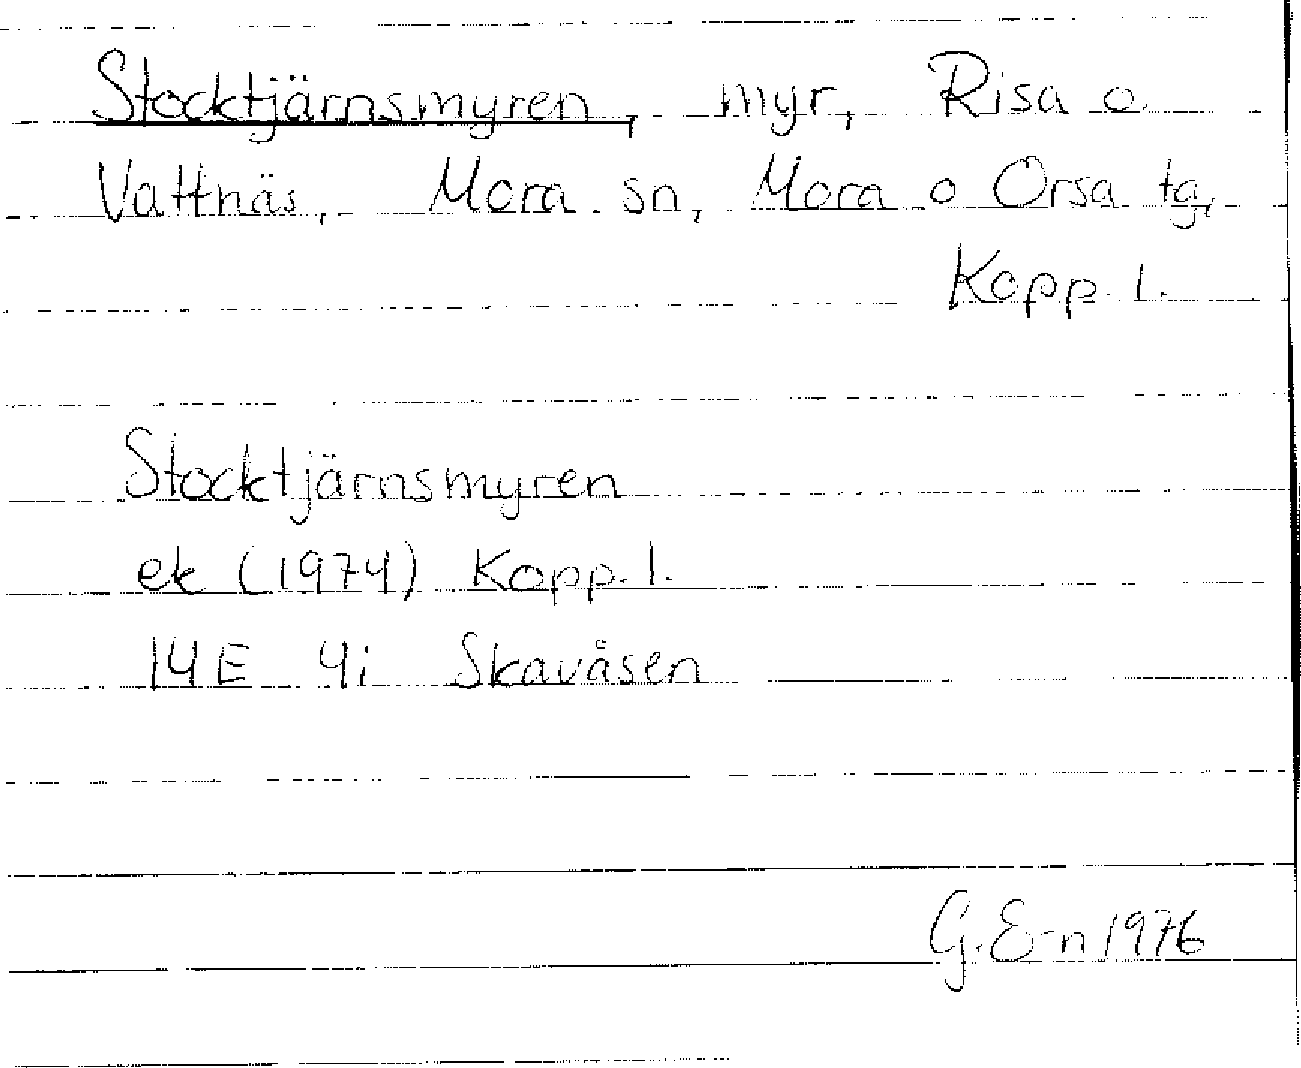 Stocktjärnsmyren, myr, Risa o
Vattnäs, Mora sn, Mora o Orsa tg,
Kopp. l.
Stocktjärnsmyren
ek (1974) Kopp. l.
14E 4i Skavåsen
G. E-n 1976